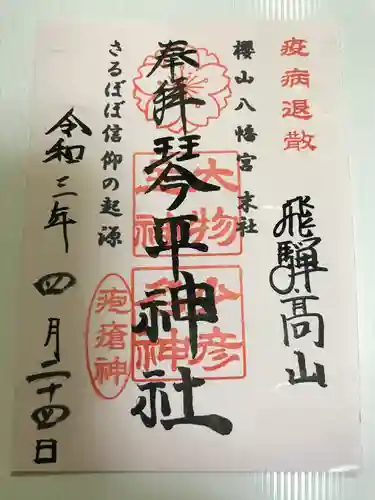 疫病退散
飛騨高山
櫻山八幡宮 末社
奉拝
琴平神社
大物主神
少彦名神
疱瘡神
さるぼぼ信仰の起源
令和三年 四月二十四日